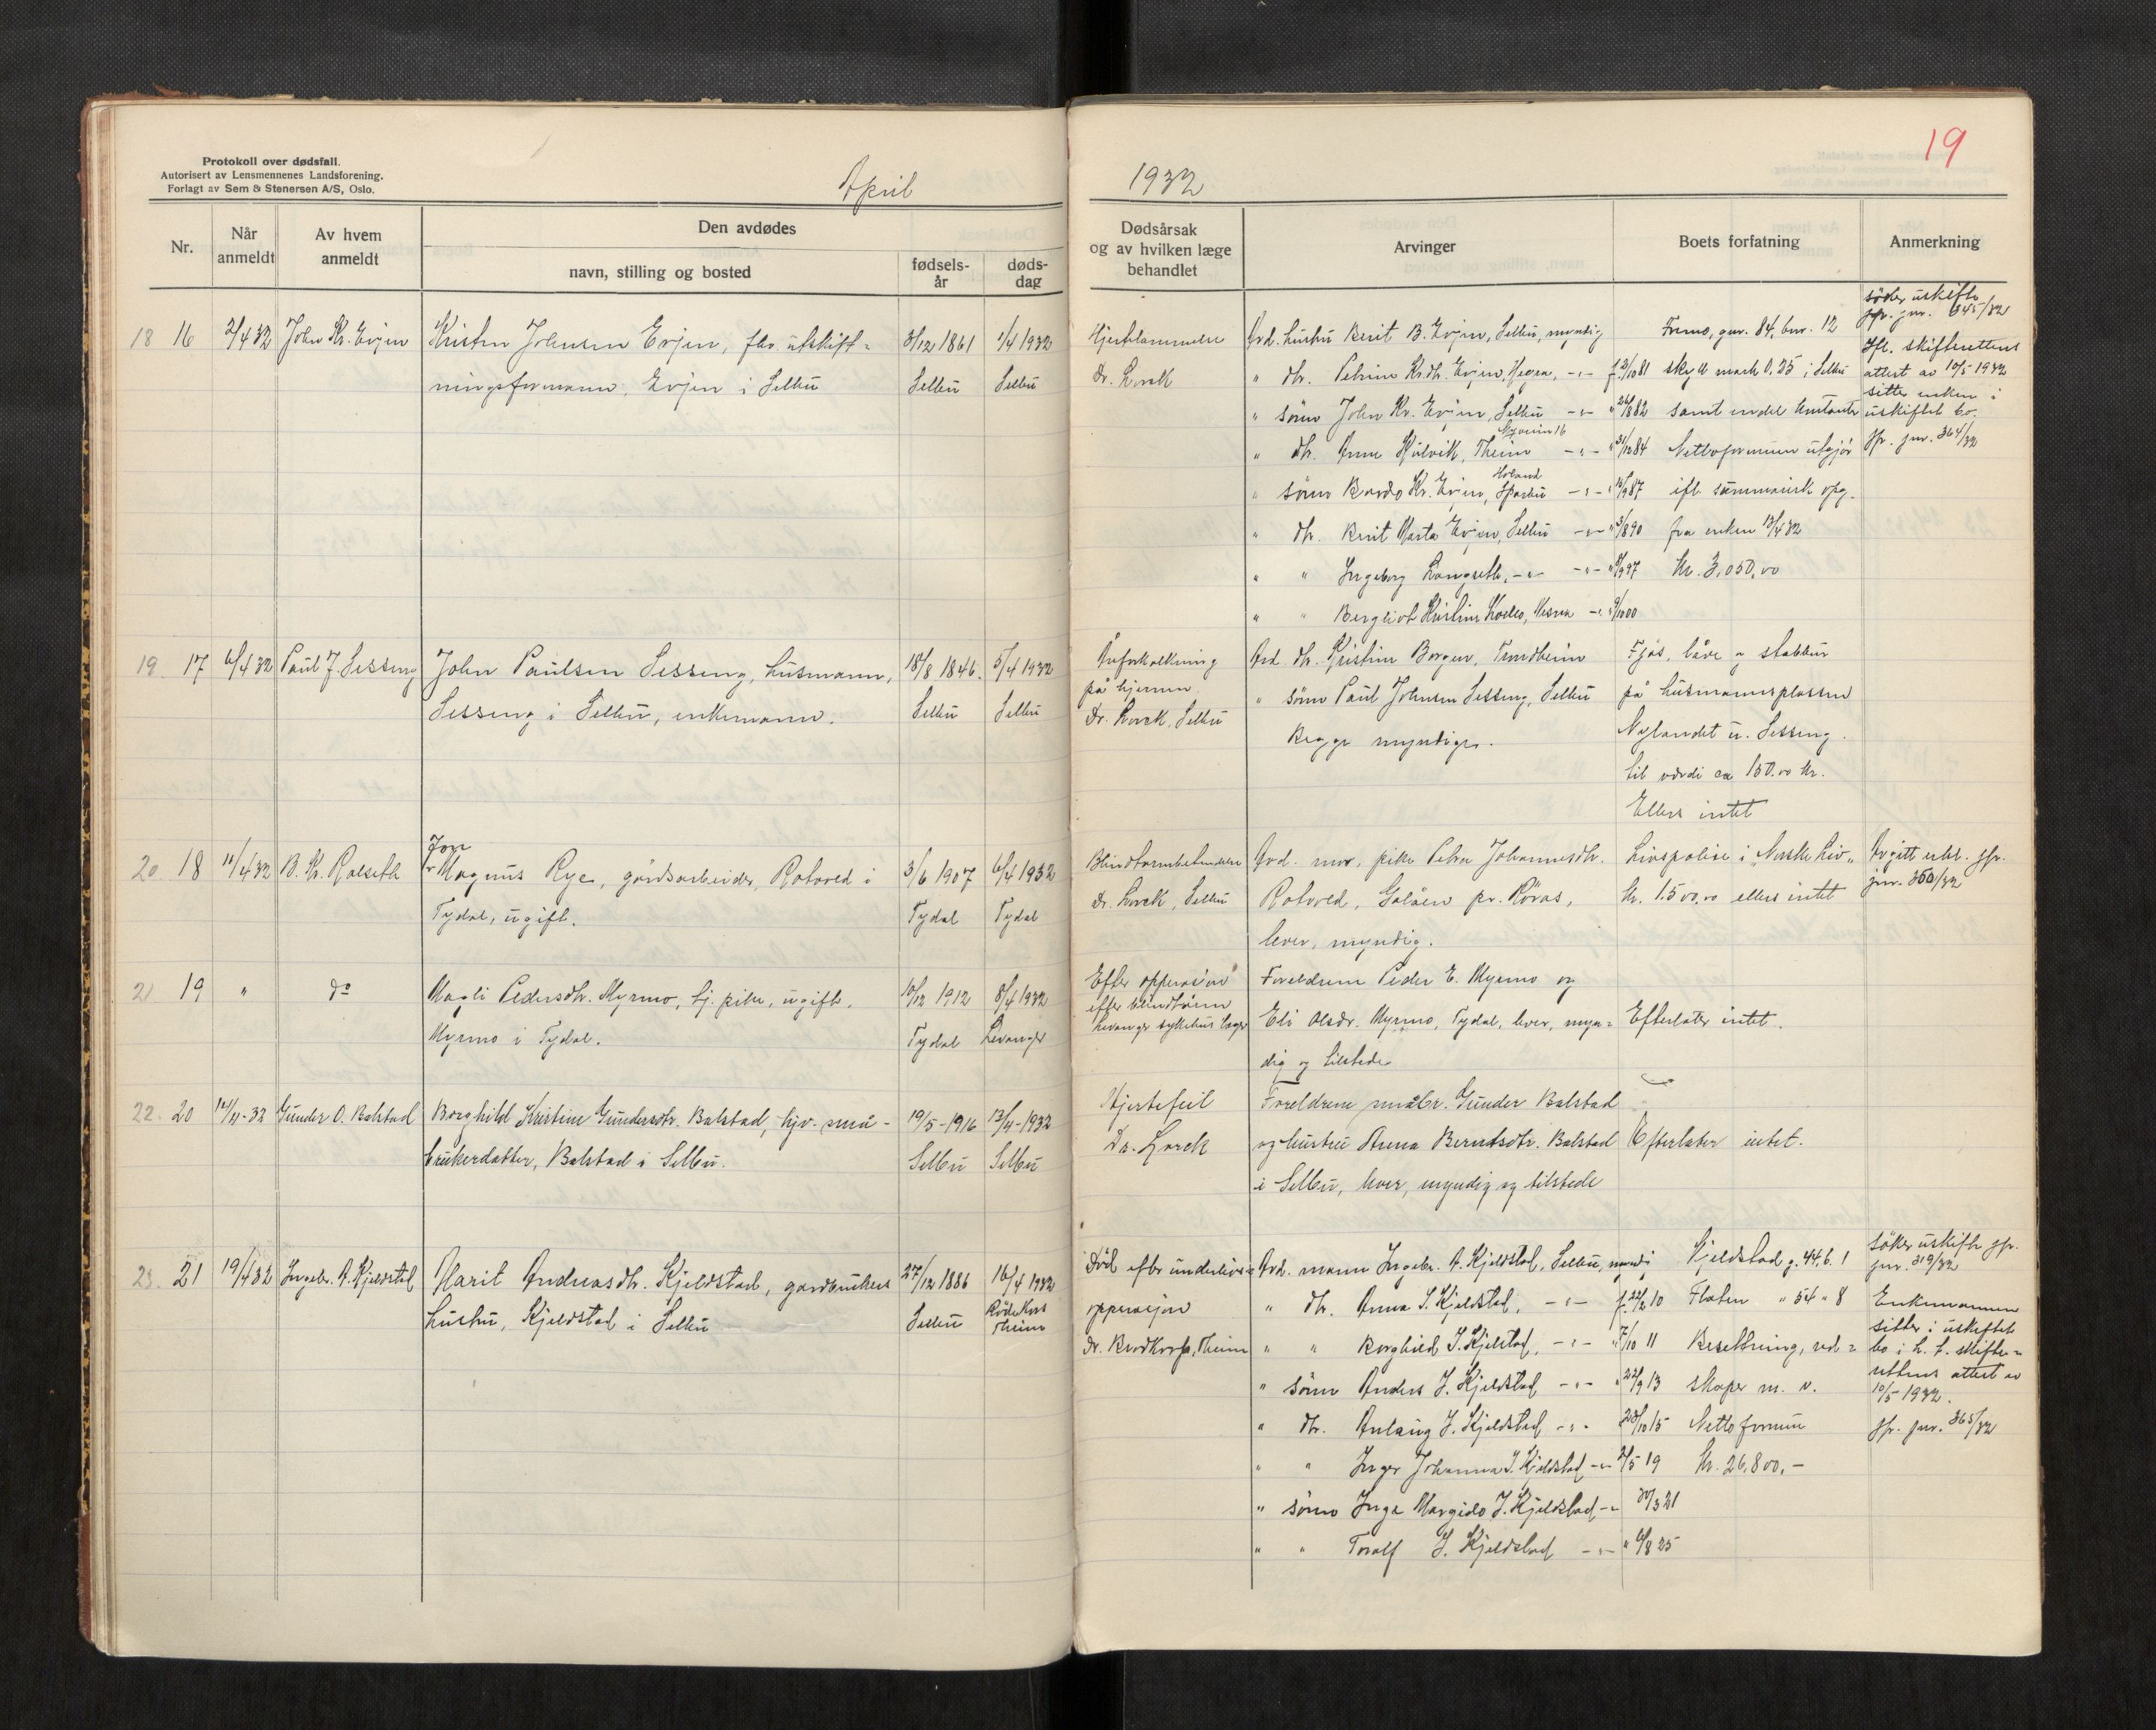 Protokoll over dødsfall.
Autorisert av Lensmennenes Landsforening.
Forlagt av Sem & Stenersen A/S, Oslo.
April
1932
19
Nr.
Når anmeldt
Av hvem anmeldt
Den avdødes
navn, stilling og bosted
fødsels-år
døds-dag
Dødsårsak og av hvilken læge behandlet
Arvinger
Boets forfatning
Anmerkning
18 16 2/4 32 John Kr. Evjen Kristen Johnsen Evjen, fhv. utskift-
ningsformann, Evjen i Selbu
3/12 1861 1/4 1932
Selbu Selbu
Hjertelammelse
Dr. Lorck
Avd. hustru Berit B. Evjen, Selbu, myndig
" dtr. Petrine Kr.dtr. Evjen, Hegra, -"- f. /10 81
" sønn John Kr. Evjen, Selbu -"- " 26/8 82
" dtr. Anne Kulvik, Theim -"- " 31/12 84
" sønn Bardo Kr. Evjen, Sparbu -"- " /9 87
" dtr. Berit Marta Evjen, Selbu -"- " 3/8 90
" " Ingeborg Langseth, -"- -"- " /9 97
" " Bergliot Kristine -"- " /10 00
Fremo, gnr. 84, bnr. 12
skyld mark 0.25 i Selbu
samt endel kontanter
Nettoformuen utgjør
ifl. summarisk opg.
fra enken 13/4 32
kr. 3,050,00
søker uskifte
jfr. jnr. 345/32
Ifl. skifterettens
attest av 10/5 1932
sitter enken i
uskiftet bo.
Jfr. jnr. 364/32
19. 17 6/4 32 Paul J. Sesseng John Paulsen Sesseng, husmann,
Sesseng i Selbu, enkemann.
18/8 1846. 5/4 1932
Selbu Selbu
Åreforkalkning
på hjernen.
Dr. Lorck, Selbu
Avd. dtr. Kristine Borgen, Trondheim
" sønn Paul Johnsen Sesseng, Selbu
Begge myndige.
Fjøs, låve og stabbur
på husmannsplassen
Nylandet u. Sesseng.
til værdi ca 150.00 kr.
Ellers intet
20. 18 11/4 32 B. Kr. Rolseth Jon
Magnus Rye, gårdsarbeider, Rotvold i
Tydal, ugift.
3/6 1907 6/4 1932
Tydal Tydal
Blindtarmbetendelse
Dr. Lorck, Selbu
Avd. mor, pike Petra Johannesdtr.
Rotvold, Galåen pr. Røros,
lever, myndig.
Livspolise i Norske Liv,
kr. 1.500,00 ellers intet
Avgitt erkl. jfr.
jnr. 350/32
21 19 " do Magli Pedersdtr. Myrmo, tj. pike, ugift.
Myrmo i Tydal.
10/12 1912 8/4 1932
Tydal Levanger
Efter operasjon
efter blindtarm
Levanger sykehus læger
Foreldrene Peder E. Myrmo og
Eli Olsdr. Myrmo, Tydal, lever, myn-
dig og tilstede
Efterlater intet.
22. 20 14/4-32 Gunder O. Balstad Borghild Kristine Gundersdtr. Balstad, hjv. små-
brukerdatter, Balstad i Selbu.
19/5-1916 13/4-1932
Selbu Selbu
Hjertefeil
Dr. Lorck
Foreldrene småbr. Gunder Balstad
og hustru Anna Berntsdtr. Balstad
i Selbu, lever, myndig og tilstede
Efterlater intet.
23. 21 19/4 32 Ingebr. A. Kjeldstad Marit Andreasdtr. Kjeldstad, gardbrukers
hustru, Kjeldstad i Selbu
27/12 1886 16/4 1932
Selbu Røde Kors
Theim
Død efter underlivs-
opperasjon
Dr. , Theim
Avd. mann Ingebr. A. Kjeldstad, Selbu, myndig
" dtr. Anna I. Kjeldstad, -"- f. 22/2 10
" " Borghild I. Kjeldstad, -"- " 7/10 11
" sønn Anders I. Kjeldstad -"- " 22/9 13
" dtr. Anlaug I. Kjeldstad -"- 28/10 15
" " Inger Johanna I. Kjeldstad -"- /5 19
" sønn Inge Margido I. Kjeldstad -"- 30/3 21
" " Toralf I. Kjeldstad -"- " 6/8 25
Kjeldstad g. 44, b. 1
Flaten " 54 " 8
Besetning, red-
skaper m. v.
Netto formue
kr. 26,800,-
søker uskifte jfr.
jnr. 319/32
Enkemannen
sitter i uskiftet
bo i h. t. skifte-
rettens attest av
10/5-1932.
Jfr. jnr. 365/32